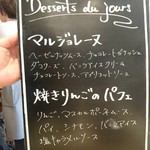 Desserts du jours
マルジョレーヌ
ヘーゼルナッツムース、チョコレートガナッシュ
ダコワーズ、バニラアイスクリーム
チョコレートソース、アプリコットソース
焼きりんごのパフェ
りんご、マスカルポーネムース
パイ、シナモン、バニラアイス
塩キャラメルソース